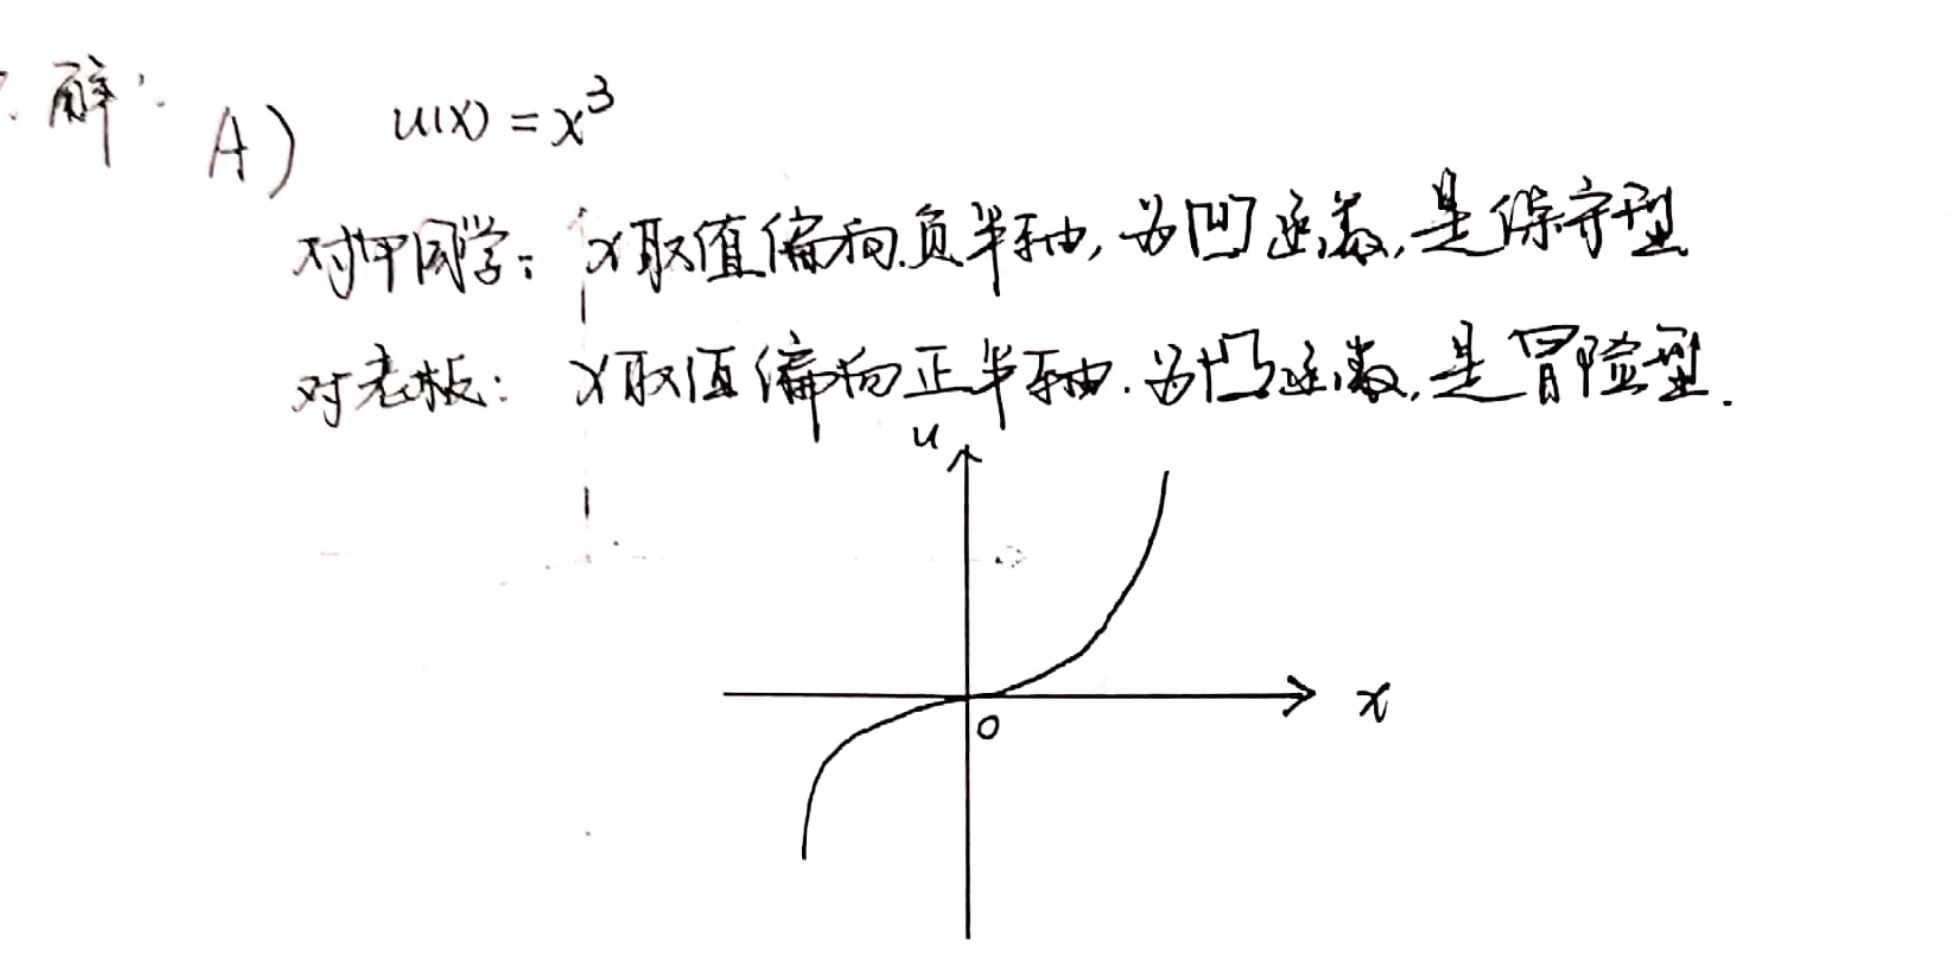 解: A) u(x) = x³
对甲同学: x取值偏向负半轴,为凹函数,是保守型
对老板: x取值偏向正半轴.为凸函数,是冒险型.
u
x
0